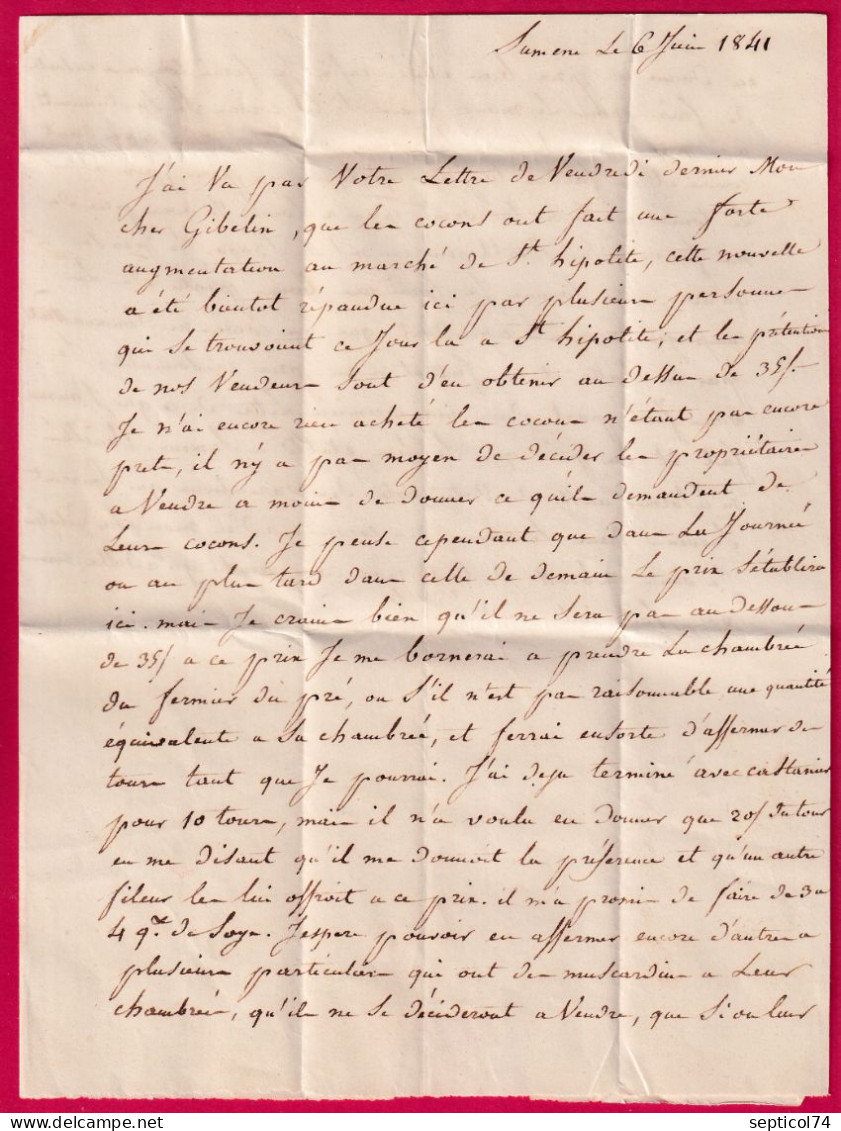 Sumene Le 6 Juin 1841
J'ai Vu par Votre Lettre de Vendredi dernier Mon
cher Gibelin, que les cocons ont fait une forte
augmentation au marché de St. hipolite, cette nouvelle
a été bientot répandue ici par plusieurs personnes
qui se trouvoient ce Jour la a St hipolite; et les prétentions
de nos Vendeurs sont d'en obtenir au dessus de 35/.
Je n'ai encore rien acheté les cocons n'étant pas encore
prets, il n'y a pas moyen de décider les propriétaires
a Vendre a moins de donner ce qu'ils demandent de
Leurs cocons. Je pense cependant que dans La Journée
ou au plus tard dans celle de demain Le prix s'établira
ici. mais Je crains bien qu'il ne sera pas au dessous
de 35/ a ce prix Je me bornerai a prendre La chambrée
du fermier du pré, ou s'il n'est pas raisonnable une quantité
équivalente a sa chambrée, et ferrai ensorte d'affermer des
tours tant que Je pourrai. J'ai deja terminé avec castanier
pour 10 tours, mais il n'a voulu en donner que 20/ du tour
en me disant qu'il me donnoit la préférence et qu'un autre
fileur les lui offroit a ce prix. il m'a promis de faire de 3 a
4 qx de Soye. J'espere pouvoir en affermer encore d'autres a
plusieurs particuliers qui ont des muscardins a Leur
chambrée, qu'ils ne se décideront a Vendre, que si on leur
septicol74